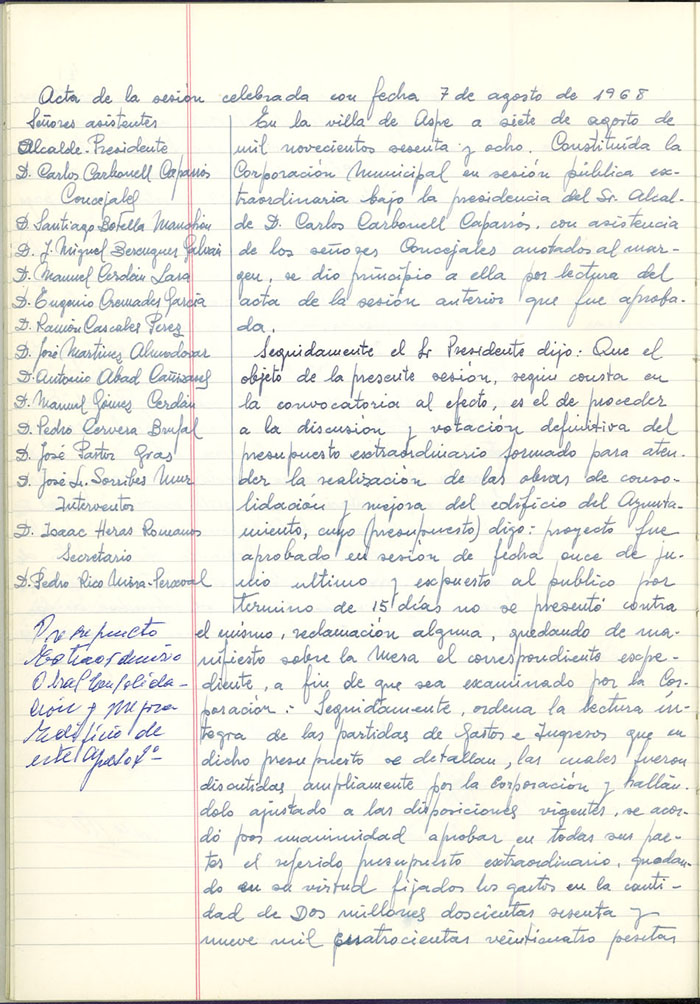 Acta de la sesión celebrada con fecha 7 de agosto de 1968
Señores asistentes
Alcalde-Presidente
D. Carlos Carbonell Caparrós
Concejales
D. Santiago Botella Manchón
D. J. Miguel Berenguer Galvañ
D. Manuel Cerdán Lara
D. Eugenio Cremades García
D. Ramón Cascales Pérez
D. José Martínez Almodovar
D. Antonio Abad Cañizares
D. Manuel Gómez Cerdán
D. Pedro Cervera Brufal
D. José Pastor Gras
D. José Sorribes Mur
Interventor
D. Isaac Heras Romanos
Secretario
D. Pedro Rico Mira-Perceval
Presupuesto
Extraordinario
Obras consolida-
ción y mejora
Edificio de
este
En la villa de Aspe a siete de agosto de
mil novecientos sesenta y ocho. Constituída la
Corporación Municipal en sesión pública ex-
traordinaria bajo la presidencia del Sr. Alcal-
de D. Carlos Carbonell Caparrós, con asistencia
de los señores Concejales anotados al mar-
gen, se dio principio a ella por lectura del
acta de la sesión anterior que fue aproba-
da.
Seguidamente el Sr Presidente dijo: Que el
objeto de la presente sesión, segun consta en
la convocatoria al efecto, es el de proceder
a la discusion y votación definitiva del
presupuesto extraordinario formado para aten-
der la realización de las obras de conso-
lidación y mejora del edificio del Ayunta-
miento, cuyo (presupuesto) digo: proyecto fue
aprobado en sesion de fecha once de ju-
nio ultimo y expuesto al publico por
termino de 15 días no se presentó contra
el mismo, reclamación alguna, quedando de ma-
nifiesto sobre la Mesa el correspondiente expe-
diente, a fin de que sea examinado por la Cor-
poración: Seguidamente, ordena la lectura ín-
tegra de las partidas de Gastos e Ingresos que en
dicho presupuesto se detallan, las cuales fueron
discutidas ampliamente por la Corporación y hallán-
dolo ajustado a las disposiciones vigentes, se acor-
dó por unanimidad aprobar en todas sus par-
tes el referido presupuesto extraordinario, quedan-
do en su virtud fijados los gastos en la canti-
dad de Dos millones doscientas sesenta y
nueve mil cuatrocientas veinticuatro pesetas